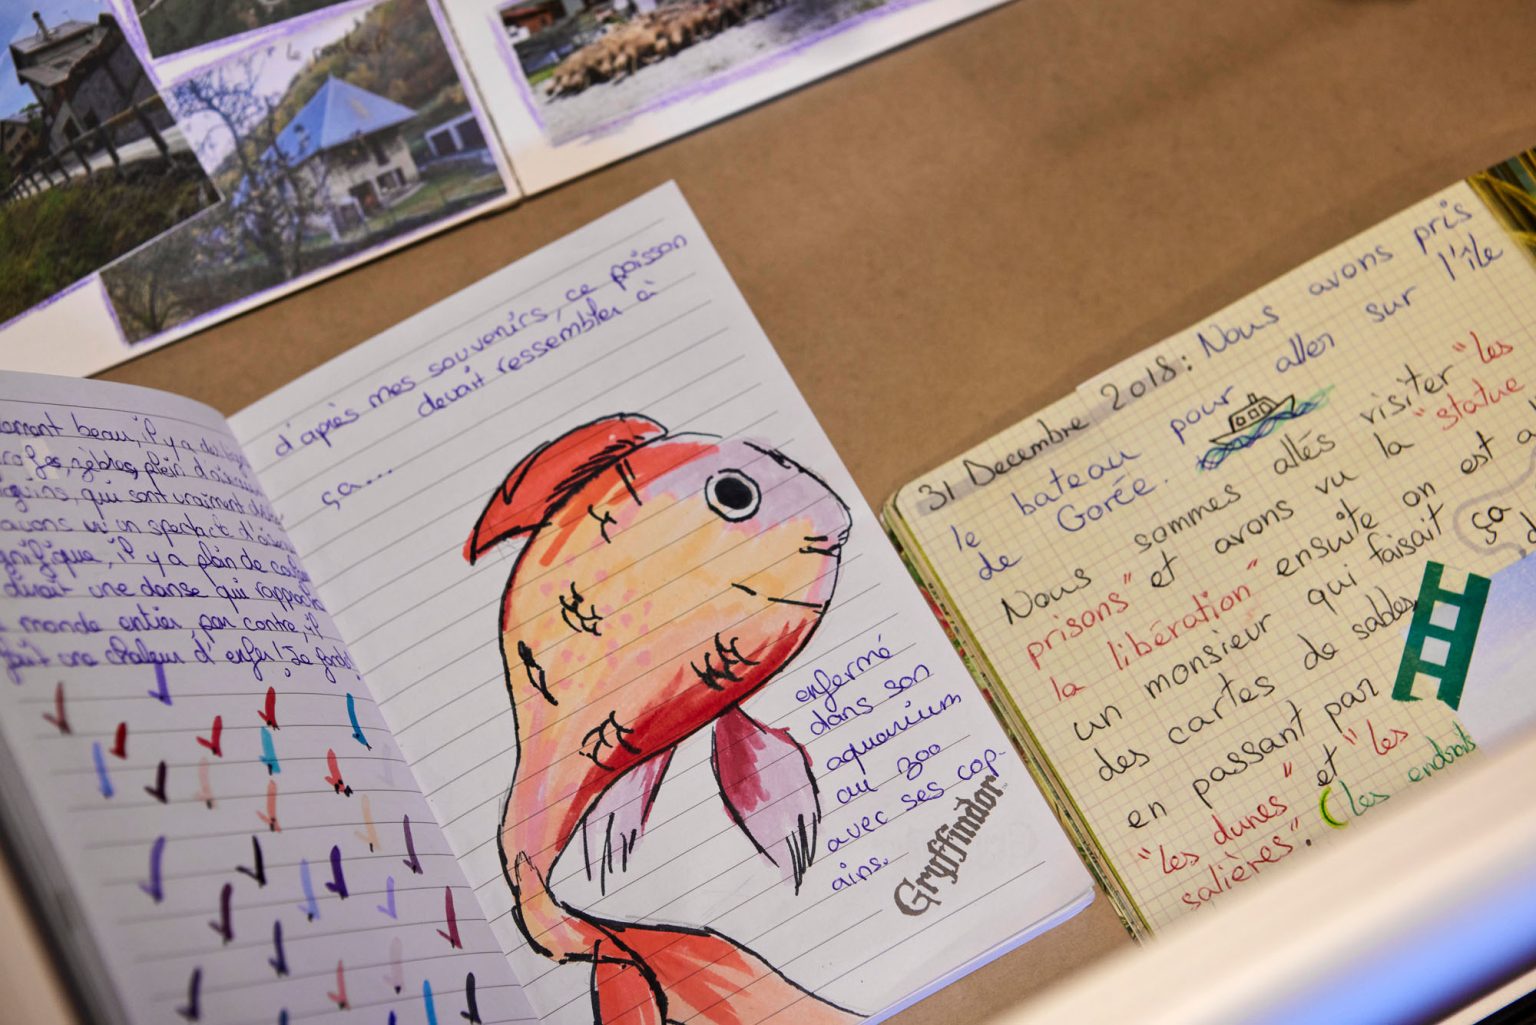 beau, il y a
zèbres, plein d'oiseaux
qui sont vraiment
avons vu un spectacle
il y a plein de
une danse qui
monde entier par contre, il
fait une chaleur d'enfer! Je
d'après mes souvenirs, ce poisson
devait ressembler à
ça...
enfermé
dans son
aquarium
au zoo
avec ses cop-
ains.
Gryffindor
31 Decembre 2018: Nous avons pris
le bateau pour aller sur l'île
de Gorée.
Nous sommes allés visiter "les
prisons" et avons vu la "statue
la libération" ensuite on est
un monsieur qui faisait ça
des cartes de sables
en passant par
"les dunes" et "les
salières". (les endroits